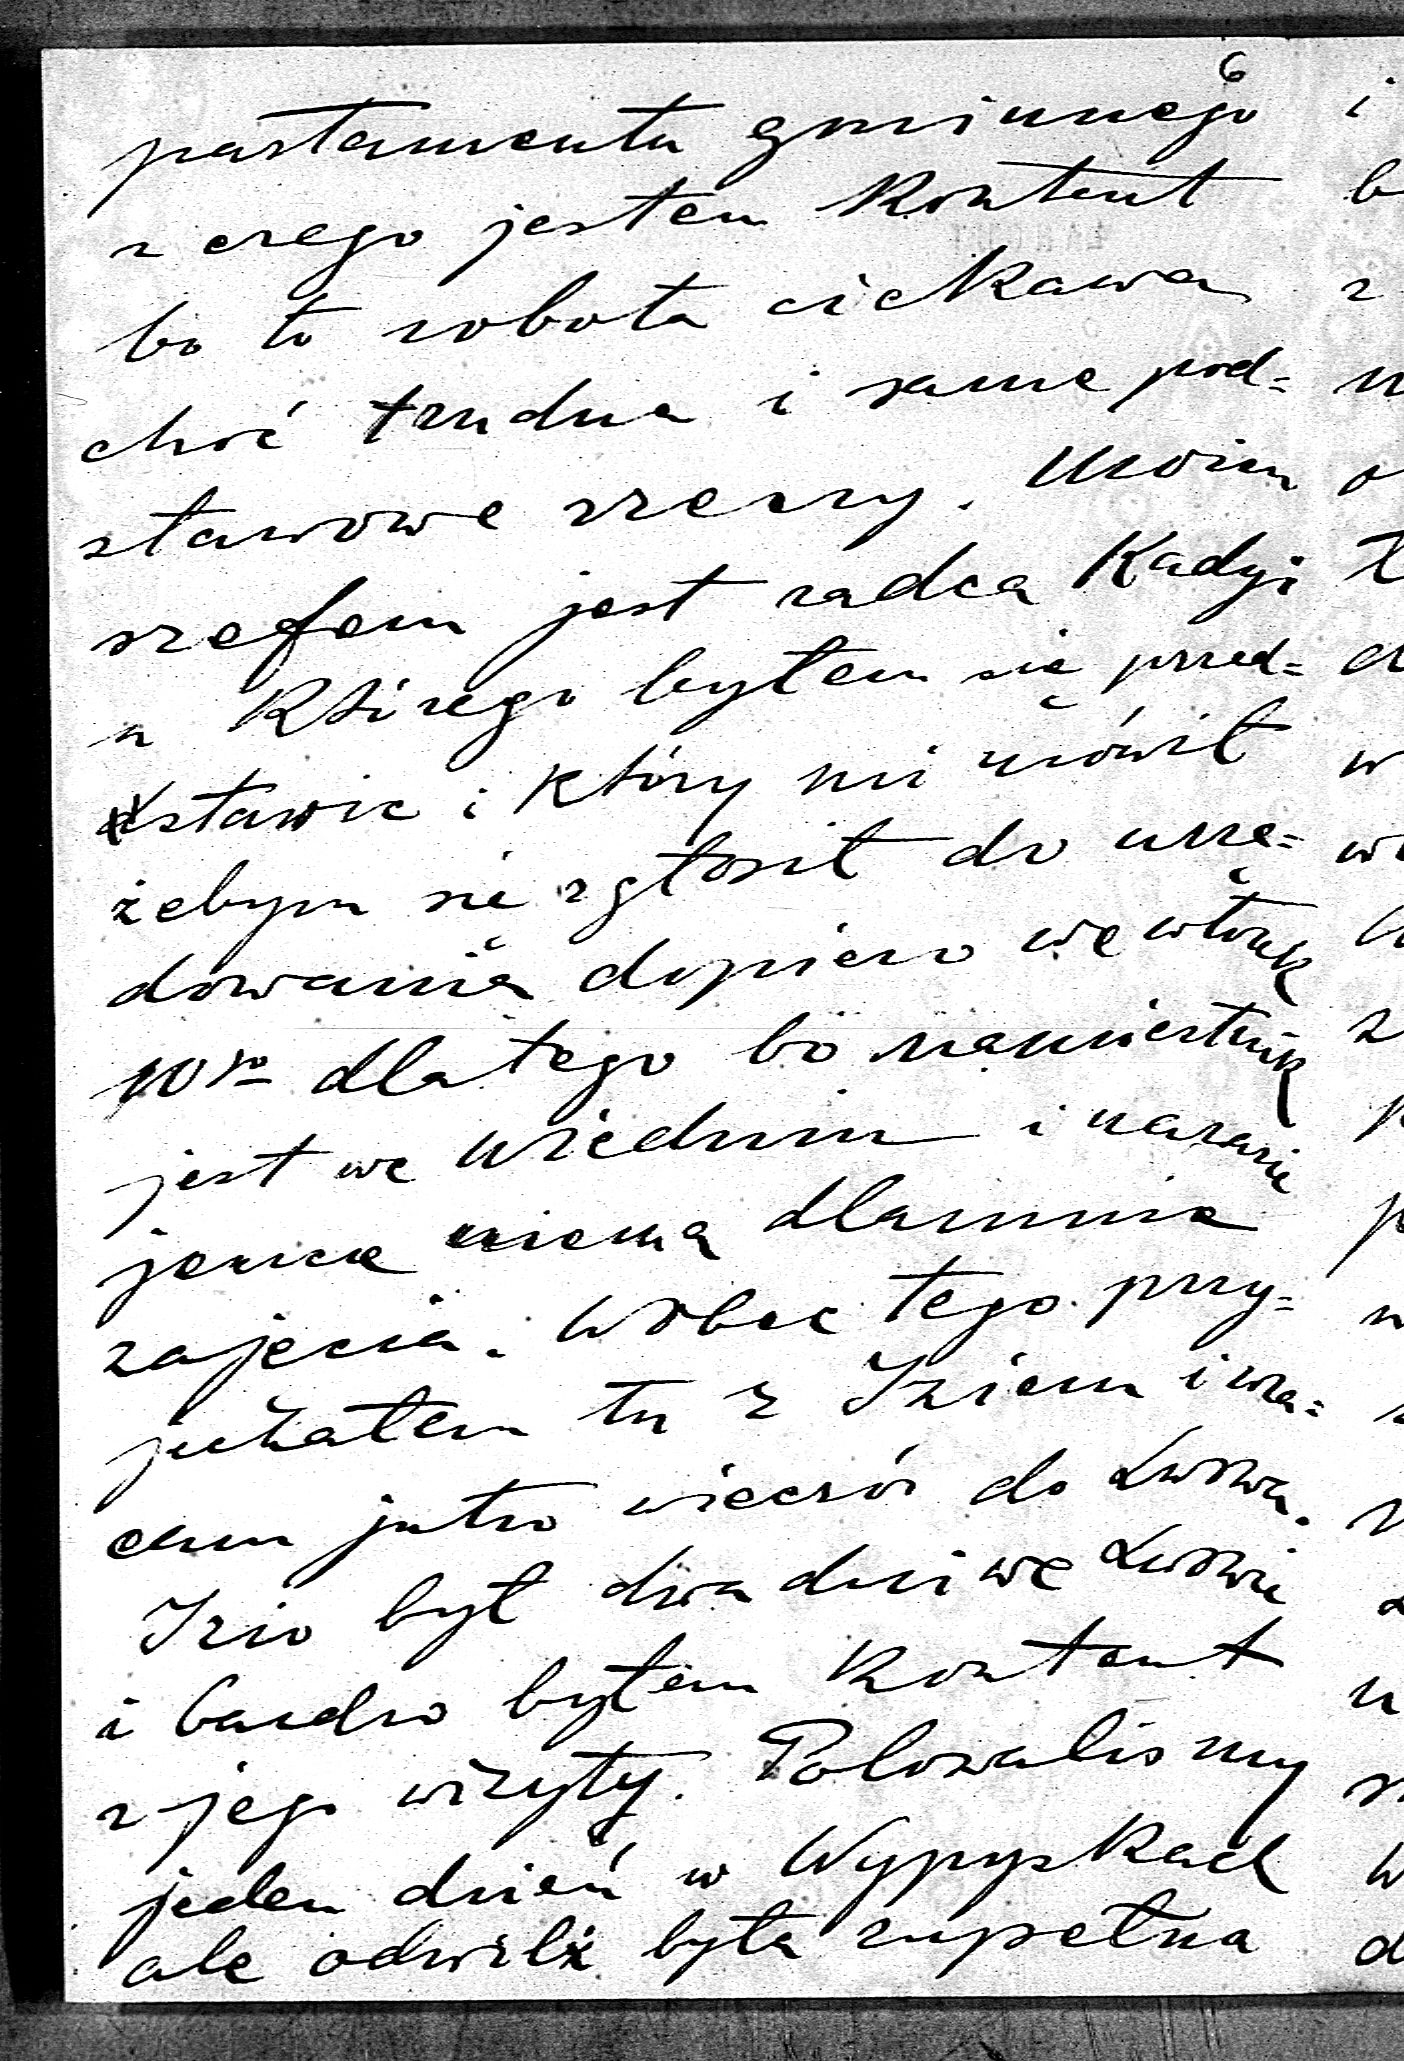 6
partamentu gminnego
z czego jestem kontent
bo to robota ciekawa
choć trudna i same pod=
stawowe rzeczy. Moim
szefem jest radca Kadyi
u którego byłem się przed=
stawić i który mi mówił
żebym się zgłosił do urzę=
dowania dopiero we wtorek
10go dlatego bo namiestnik
jest we Wiedniu i narazie
jeszcze niema dlamnie
zajęcia. Wobec tego przy=
jechałem tu z Iziem i wra=
cam jutro wieczór do Lwowa.
Izio był dwa dni we Lwowie
i bardzo byłem kontent
z jego wizyty. Polowaliśmy
jeden dzień w Wypyskach
ale odwilż była zupełna